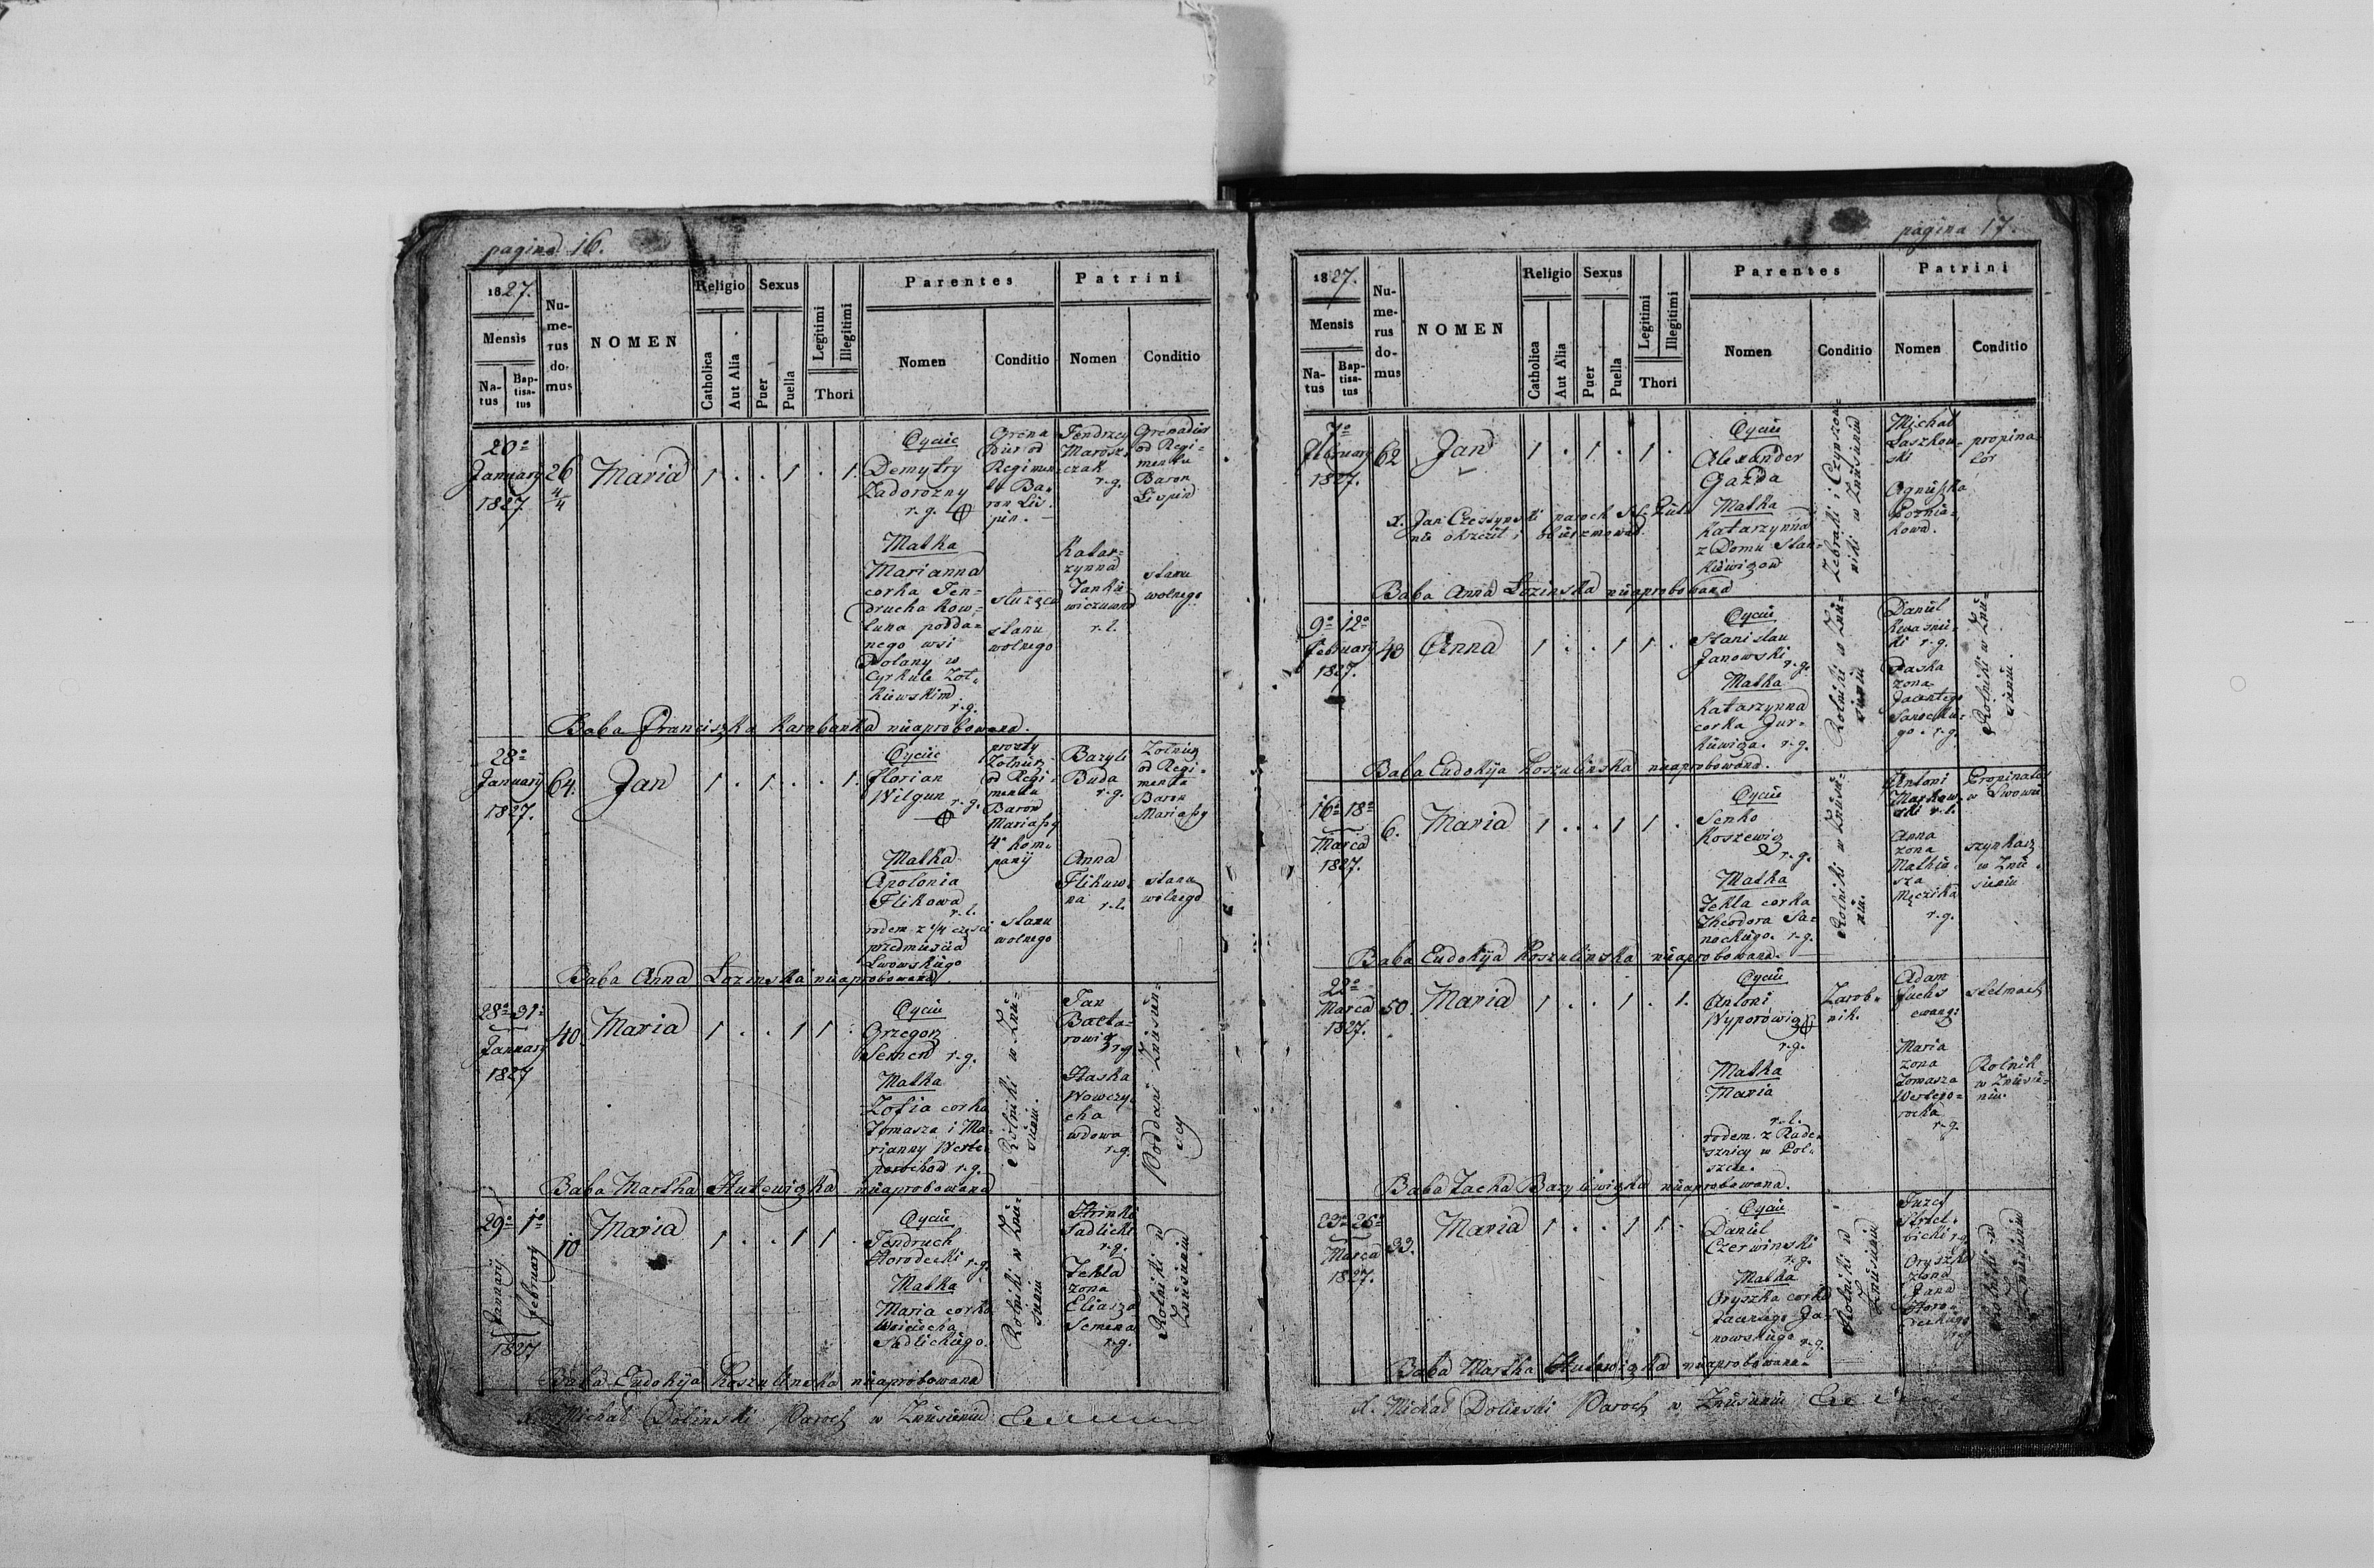 pagina 16.
1827.
Mensis
Na-
tus
Bap-
tisa-
tus
Nu-
me-
rus
do-
mus
NOMEN
Religio
Catholica
Aut Alia
Sexus
Puer
Puella
Legitimi
Illegitimi
Thori
Parentes
Nomen
Conditio
Patrini
Nomen
Conditio
20a
January
1827
26
4/4
Maria
1 . . 1 . 1.
Oyciec
Demytry
Zadorozny
r. g.
Matka
Marianna
corka Jen-
drucha Kow-
luna podda-
nego wsi
Polany w
Cyrkule Zoł-
kiewskim
r. g.
Grena
dier od
Regimen
tu Ba-
ron Lis
pin.
służąca
stanu
wolnego
Jendrzey
Marosz-
czak
r. g.
Katar-
zynna
Janki-
wiczuwna
r. l.
Grenadier
od Regi-
mentu
Baron
Lispin
stanu
wolnego
Baba Franciszka Karabanka nieaprobowana.
28a
January
1827.
64.
Jan
1 . 1 . . 1.
Oyciec
Florian
Wilgun
r. g.
Matka
Apolonia
Flikowa
r. l.
rodem z 1/4 częsci
przedmieścia
Lwowskiego
prosty
Zołnierz
od Regi-
mentu
Baron
Mariassy
4a kom-
panij
stanu
wolnego
Bazyli
Buda
r. g.
Anna
Flikuw-
na r. l.
Zołnierz
od Regi-
mentu
Baron
Mariassy
stanu
wolnego
Baba Anna Łozinska nieaprobowana.
28a 31a
January
1827
40
Maria
1 . . 1 1 .
Oyciec
Grzegorz
Semen r. g.
Matka
Zofia corka
Tomasza i Ma-
rianny Werte-
porochow r. g.
Rolniki w Znie-
sieniu.
Jan
Bałta-
rowicz
r. g.
Staska
Wowczy-
cha
wdowa
r. g.
Poddani Zniesień-
scy
Baba Martha Hutewiczka nieaprobowana
29a 1a
January
February
1827
10
Maria
1 . . 1 1 .
Oyciec
Jendruch
Horodecki r. g.
Matka
Maria corka
Woiciecha
Sadlickiego.
Rolniki w Znie-
sieniu
Hrinki
Sadlicki
r. g.
Tekla
zona
Eliasza
Semena
r. g.
Rolniki w
Zniesieniu
Baba Eudokija Koszulinska nieaprobowana
X. Michał Dolinski Paroch w Zniesieniu
pagina 17.
1827.
Mensis
Na-
tus
Bap-
tisa-
tus
Nu-
me-
rus
do-
mus
NOMEN
Religio
Catholica
Aut Alia
Sexus
Puer
Puella
Legitimi
Illegitimi
Thori
Parentes
Nomen
Conditio
Patrini
Nomen
Conditio
7a
February
1827.
62
Jan
1 . 1 . 1 .
Oyciec
Alexander
Gazda
Matka
Katarzynna
z Domu Stan-
kiewiczow
Zebraki i Czynszow-
niki w Zniesieniu
Michał
Laszkow-
ski
Agnieszka
Poznia-
kowa.
propina-
tor
X. Jan Czestynski paroch
Baba Anna Łozinska nieaprobowana
9a 12a
February
1827.
43
Anna
1 . . 1 1 .
Oyciec
Stanislau
Janowski
r. g.
Matka
Katarzynna
corka Jur-
kiewicza. r. g.
Rolniki w Znie-
sieniu
Daniel
Kwasnic-
ki r. g.
Paska
zona
Jacentego
Sanockie-
go. r. g.
Rolniki w Znie-
sieniu.
Baba Eudokija Koszulinska nieaprobowana.
16a 18a
Marca
1827.
6.
Maria
1 . . 1 1 .
Oyciec
Senko
Koszewicz
r. g.
Matka
Tekla corka
Theodora Sa-
nockiego. r. g.
Rolniki w Zniesie-
niu.
Antoni
Markow-
ski r. l.
Anna
zona
Mathie-
sza
Męczika
r. g.
Propinator
w Lwowie
szynkarz
w Znie-
sieniu
Baba Eudokija Koszulinska nieaprobowana.
22a
Marca
1827.
50.
Maria
1 . . 1 . 1.
Oyciec
Antoni
Wyporowicz
r. g.
Matka
Maria
r. l.
rodem z Rade-
sznicy w Pol-
szcze.
Zarob-
nik.
Adam
Fuchs
ewang:
Maria
zona
Tomasza
Wertepo-
rocha
r. g.
stelmach
Rolnik
w Zniesie-
niu.
Baba Zacka Bazylewiczka nieaprobowana.
23a 25a
Marca
1827.
33.
Maria
1 . . 1 1 .
Oyciec
Daniel
Czerwinski
r. g.
Matka
Oryszka corka
Jacentego Ja-
nowskiego r. g.
Rolniki w
Zniesieniu
Juzef
Strzel-
bicki r. g.
Oryszka
zona
Jana
Horo-
deckiego
r. g.
Rolniki w
Zniesieniu
Baba Martha Hutewiczka nieaprobowana.
X. Michał Dolinski Paroch w Zniesieniu